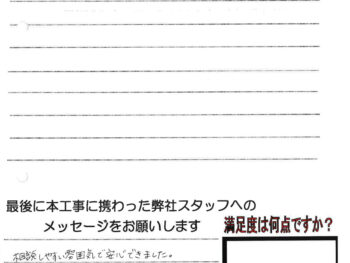 最後に本工事に携わった弊社スタッフへの
メッセージをお願いします
満足度は何点ですか？
相談しやすい雰囲気で安心できました。